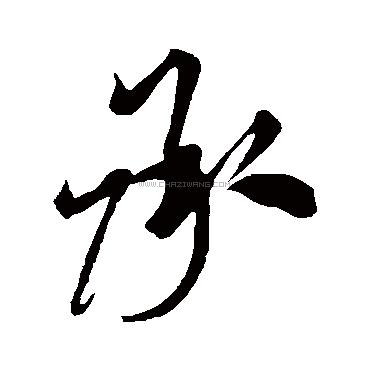 承
WWW.CHAZIWANG.COM